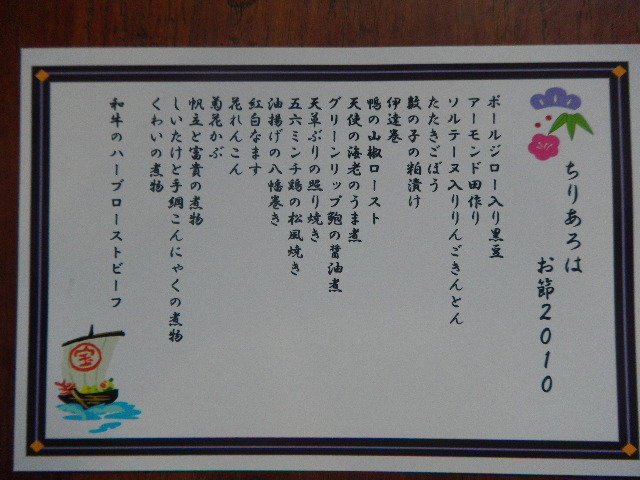 ちりあろは
お節2010
ポールジロー入り黒豆
アーモンド田作り
ソルテーヌ入りりんごきんとん
たたきごぼう
数の子の粕漬け
伊達巻
鴨の山椒ロースト
天使の海老のうま煮
グリーンリップ鮑の醤油煮
天草ぶりの照り焼き
五六ミンチ鶏の松風焼き
油揚げの八幡巻き
紅白なます
花れんこん
菊花かぶ
帆立と富貴の煮物
しいたけと手綱こんにゃくの煮物
くわいの煮物
和牛のハーブローストビーフ
宝